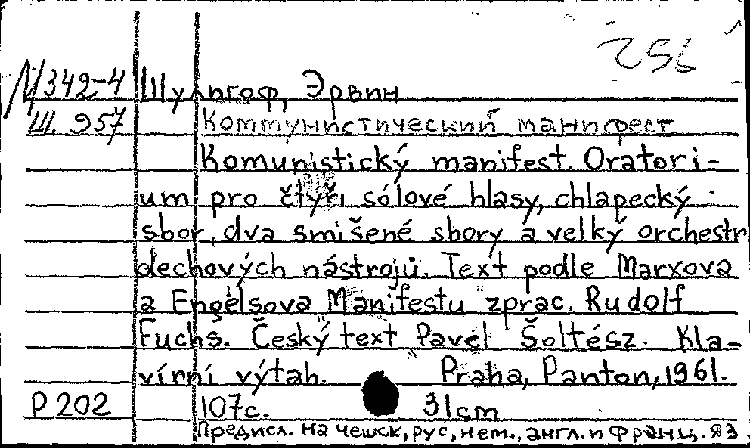 256
М 342-4 Шулигоф, Эрвин
Ш. 957 Коммунистический манифест
Komunistický manifest. Oratori-
um pro čtyři sólové hlasy, chlapecký
sbor, dva smíšené sbory a velký orchestr
dechových nástrojů. Text podle Marxova
a Engelsova Manifestu zprac. Rudolf
Fuchs. Český text Pavel Šoltész. Kla-
vírní výtah. Praha, Panton, 1961.
P 202 107с. 31cm
Предисл. на чешск, рус, нем., англ. и франц. яз